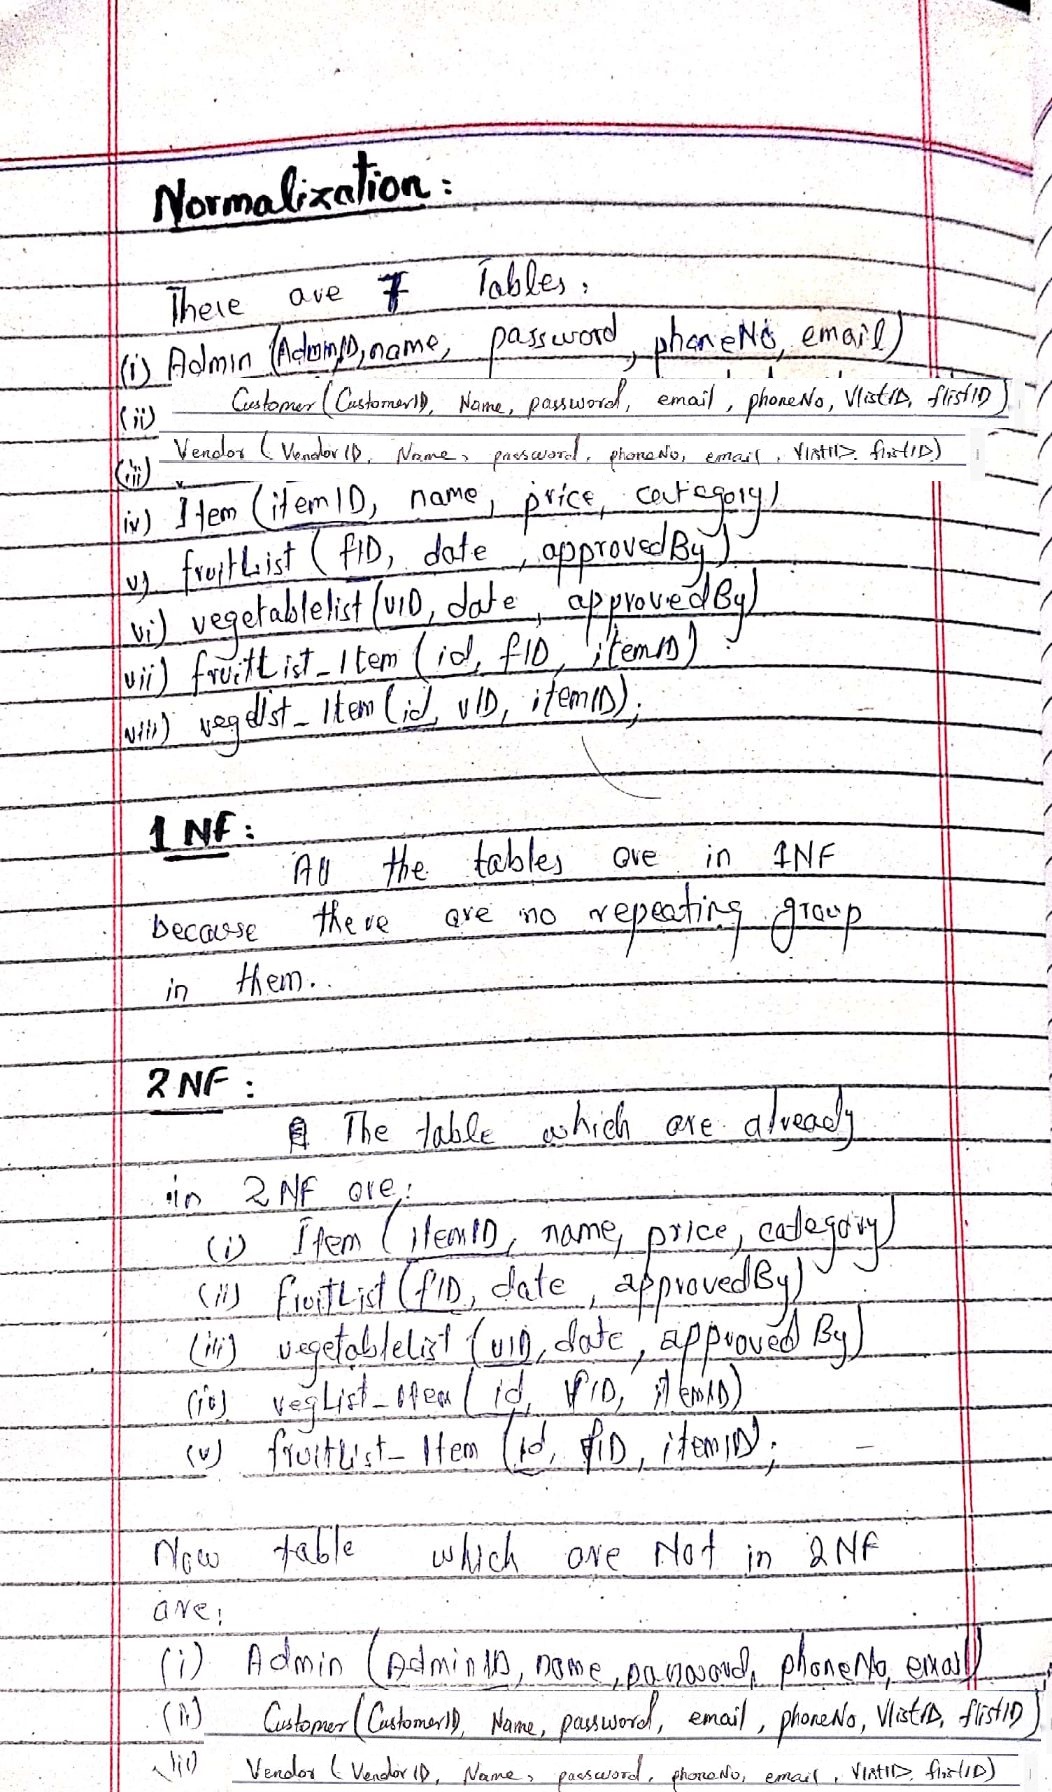 Normalization:
There are 7 Tables:
(i) Admin (AdminID, name, password, phoneNo, email)
(ii) Customer (CustomerID, Name, password, email, phoneNo, VlistID, flistID)
(iii) Vendor (VendorID, Name, password, phoneNo, email, VlistID, flistID)
iv) Item (itemID, name, price, category)
v) fruitList (fID, date, approvedBy)
vi) vegetablelist (vID, date, approvedBy)
vii) fruitList_Item (id, fID, itemID)
viii) veglist_Item (id, vID, itemID);
1 NF:
All the tables are in 1NF
because there are no repeating group
in them.
2 NF:
The table which are already
in 2NF are:
(i) Item (itemID, name, price, category)
(ii) fruitList (fID, date, approvedBy)
(iii) vegetablelist (vID, date, approved By)
(iv) vegList_Item (id, vID, itemID)
(v) fruitList_Item (id, fID, itemID);
Now table which are Not in 2NF
are;
(i) Admin (AdminID, name, password, phoneNo, email)
(ii) Customer (CustomerID, Name, password, email, phoneNo, VlistID, flistID)
(iii) Vendor (VendorID, Name, password, phoneNo, email, VlistID, flistID)